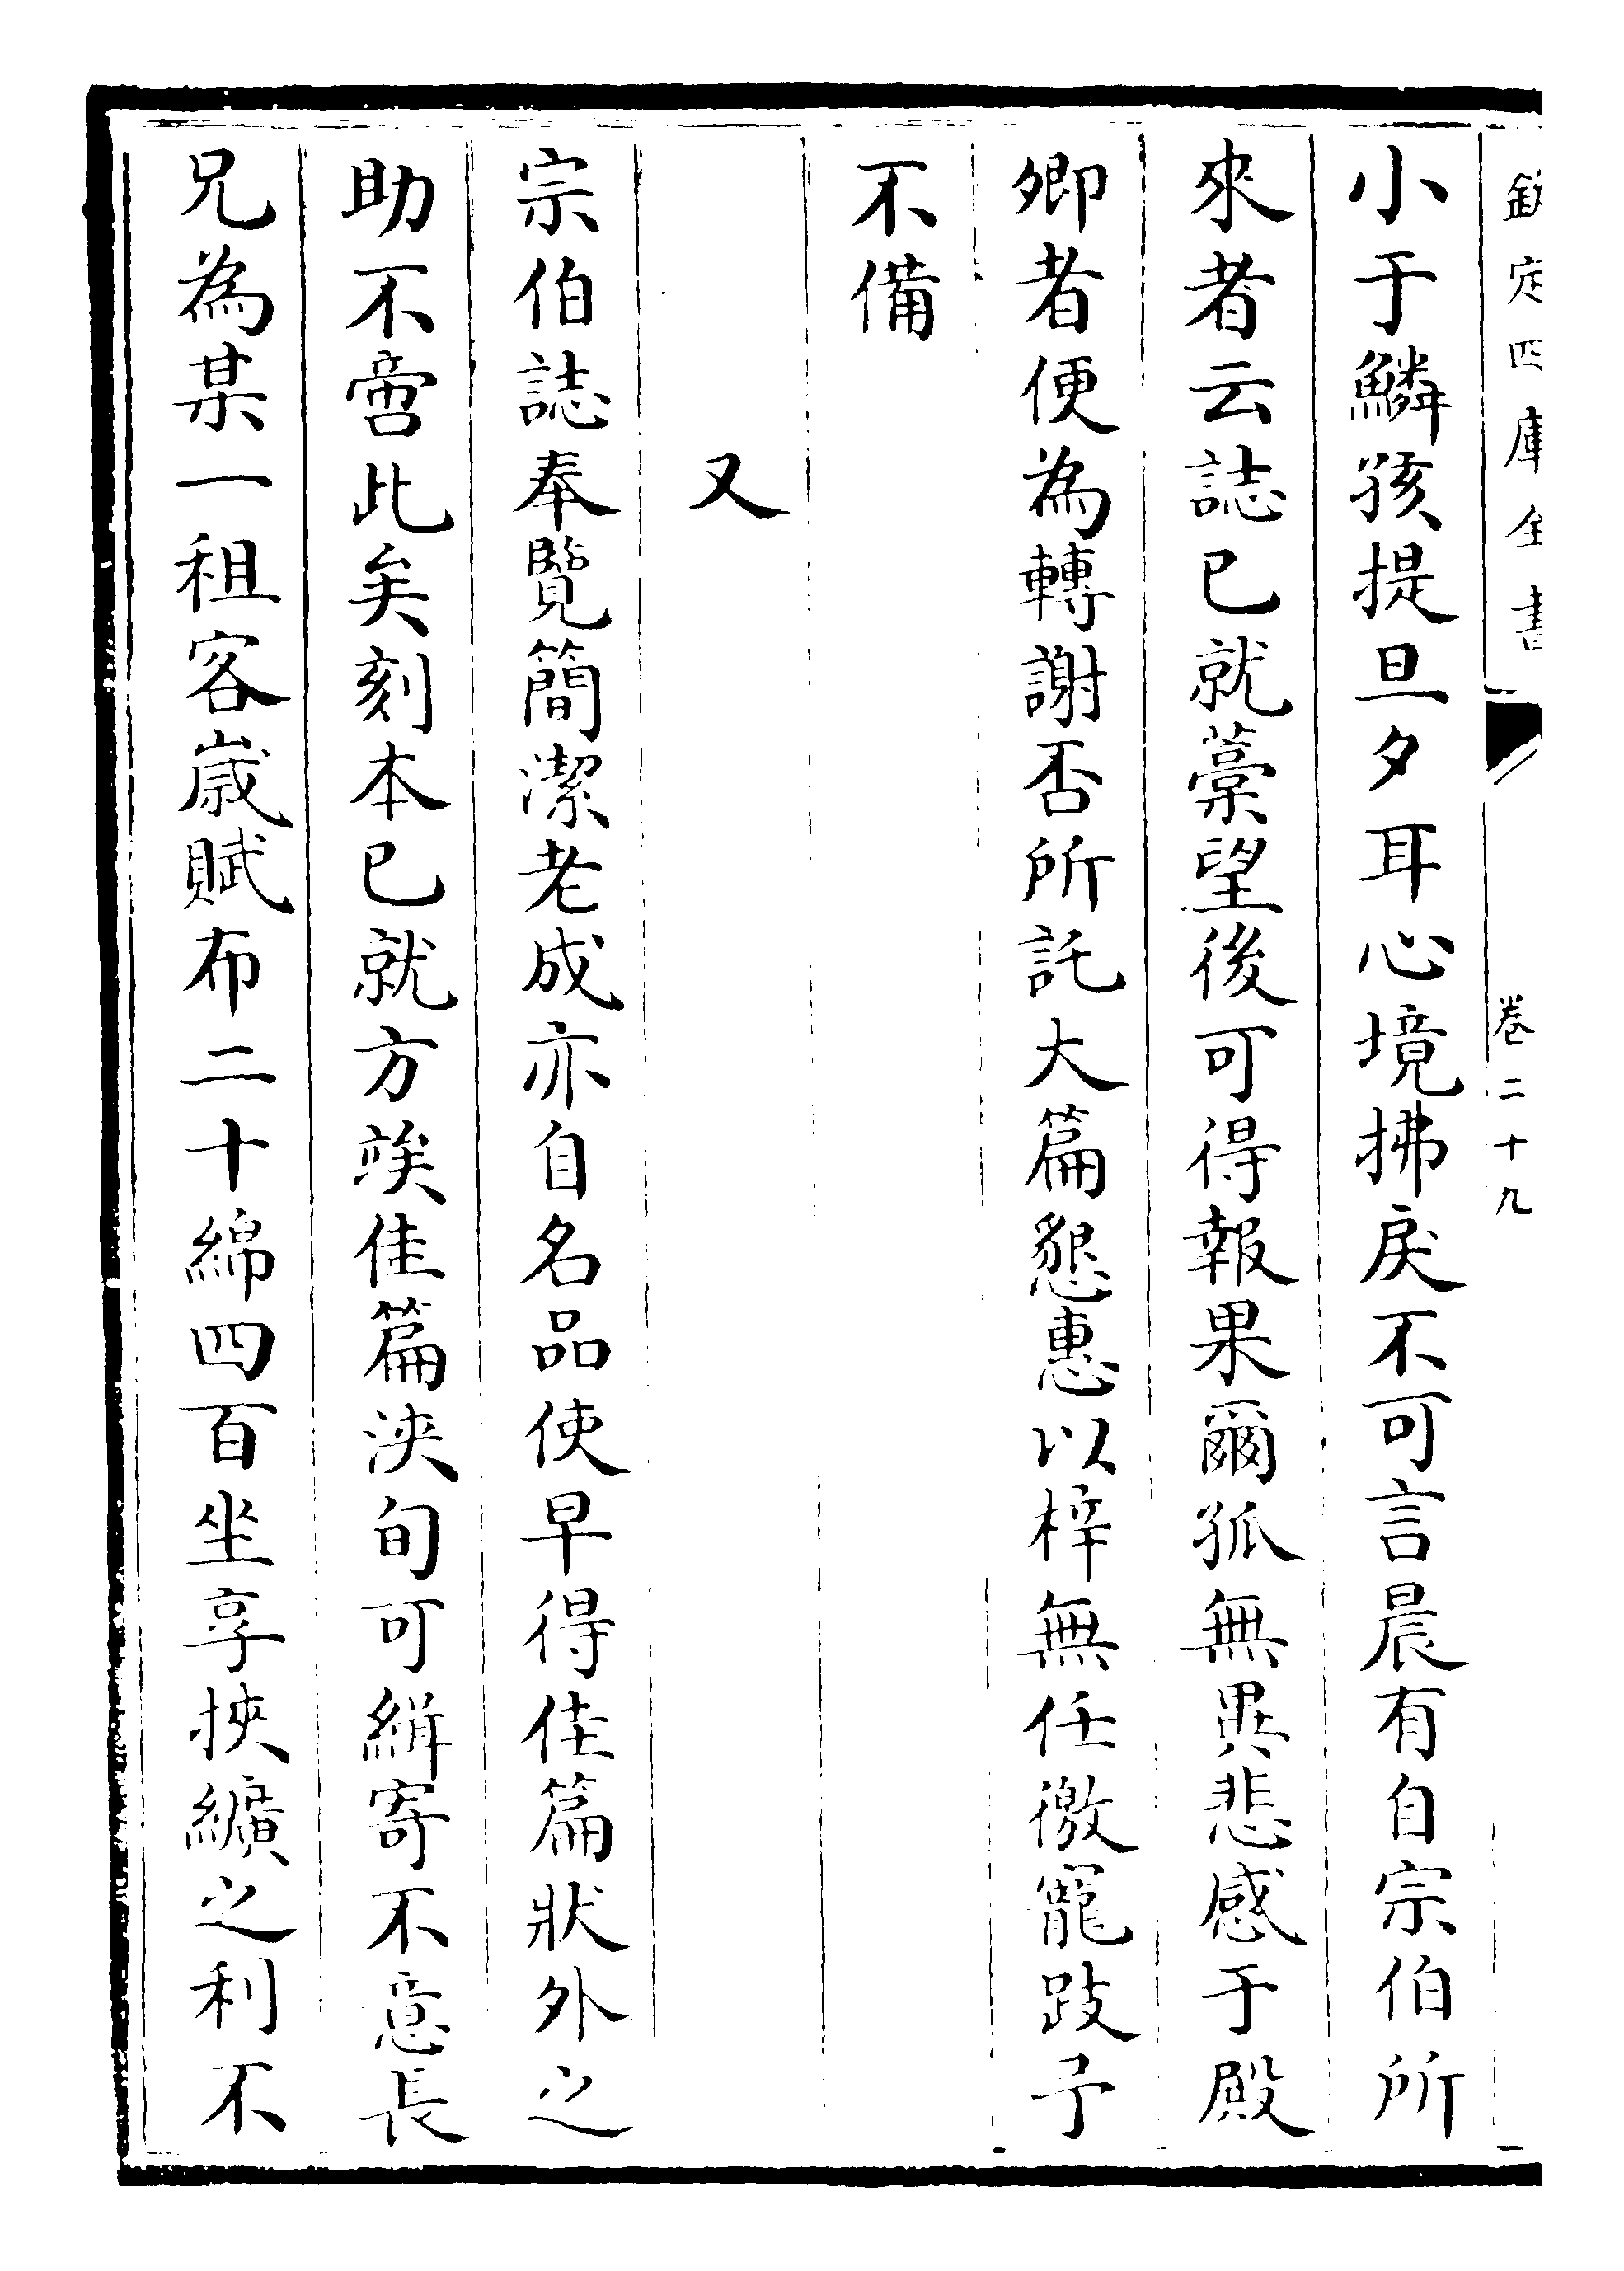 欽定四庫全書
卷二十九
小于鱗孩提旦夕耳心境拂戾不可言晨有自宗伯所
來者云誌已就藁望後可得報果爾孤無異悲感于殿
卿者便為轉謝否所託大篇懇惠以梓無任徼寵跂予
不備
又
宗伯誌奉覽簡潔老成亦自名品使早得佳篇狀外之
助不啻此矣刻本已就方竢佳篇浹旬可緝寄不意長
兄為某一租客歲賦布二十綿四百坐享挾纊之利不